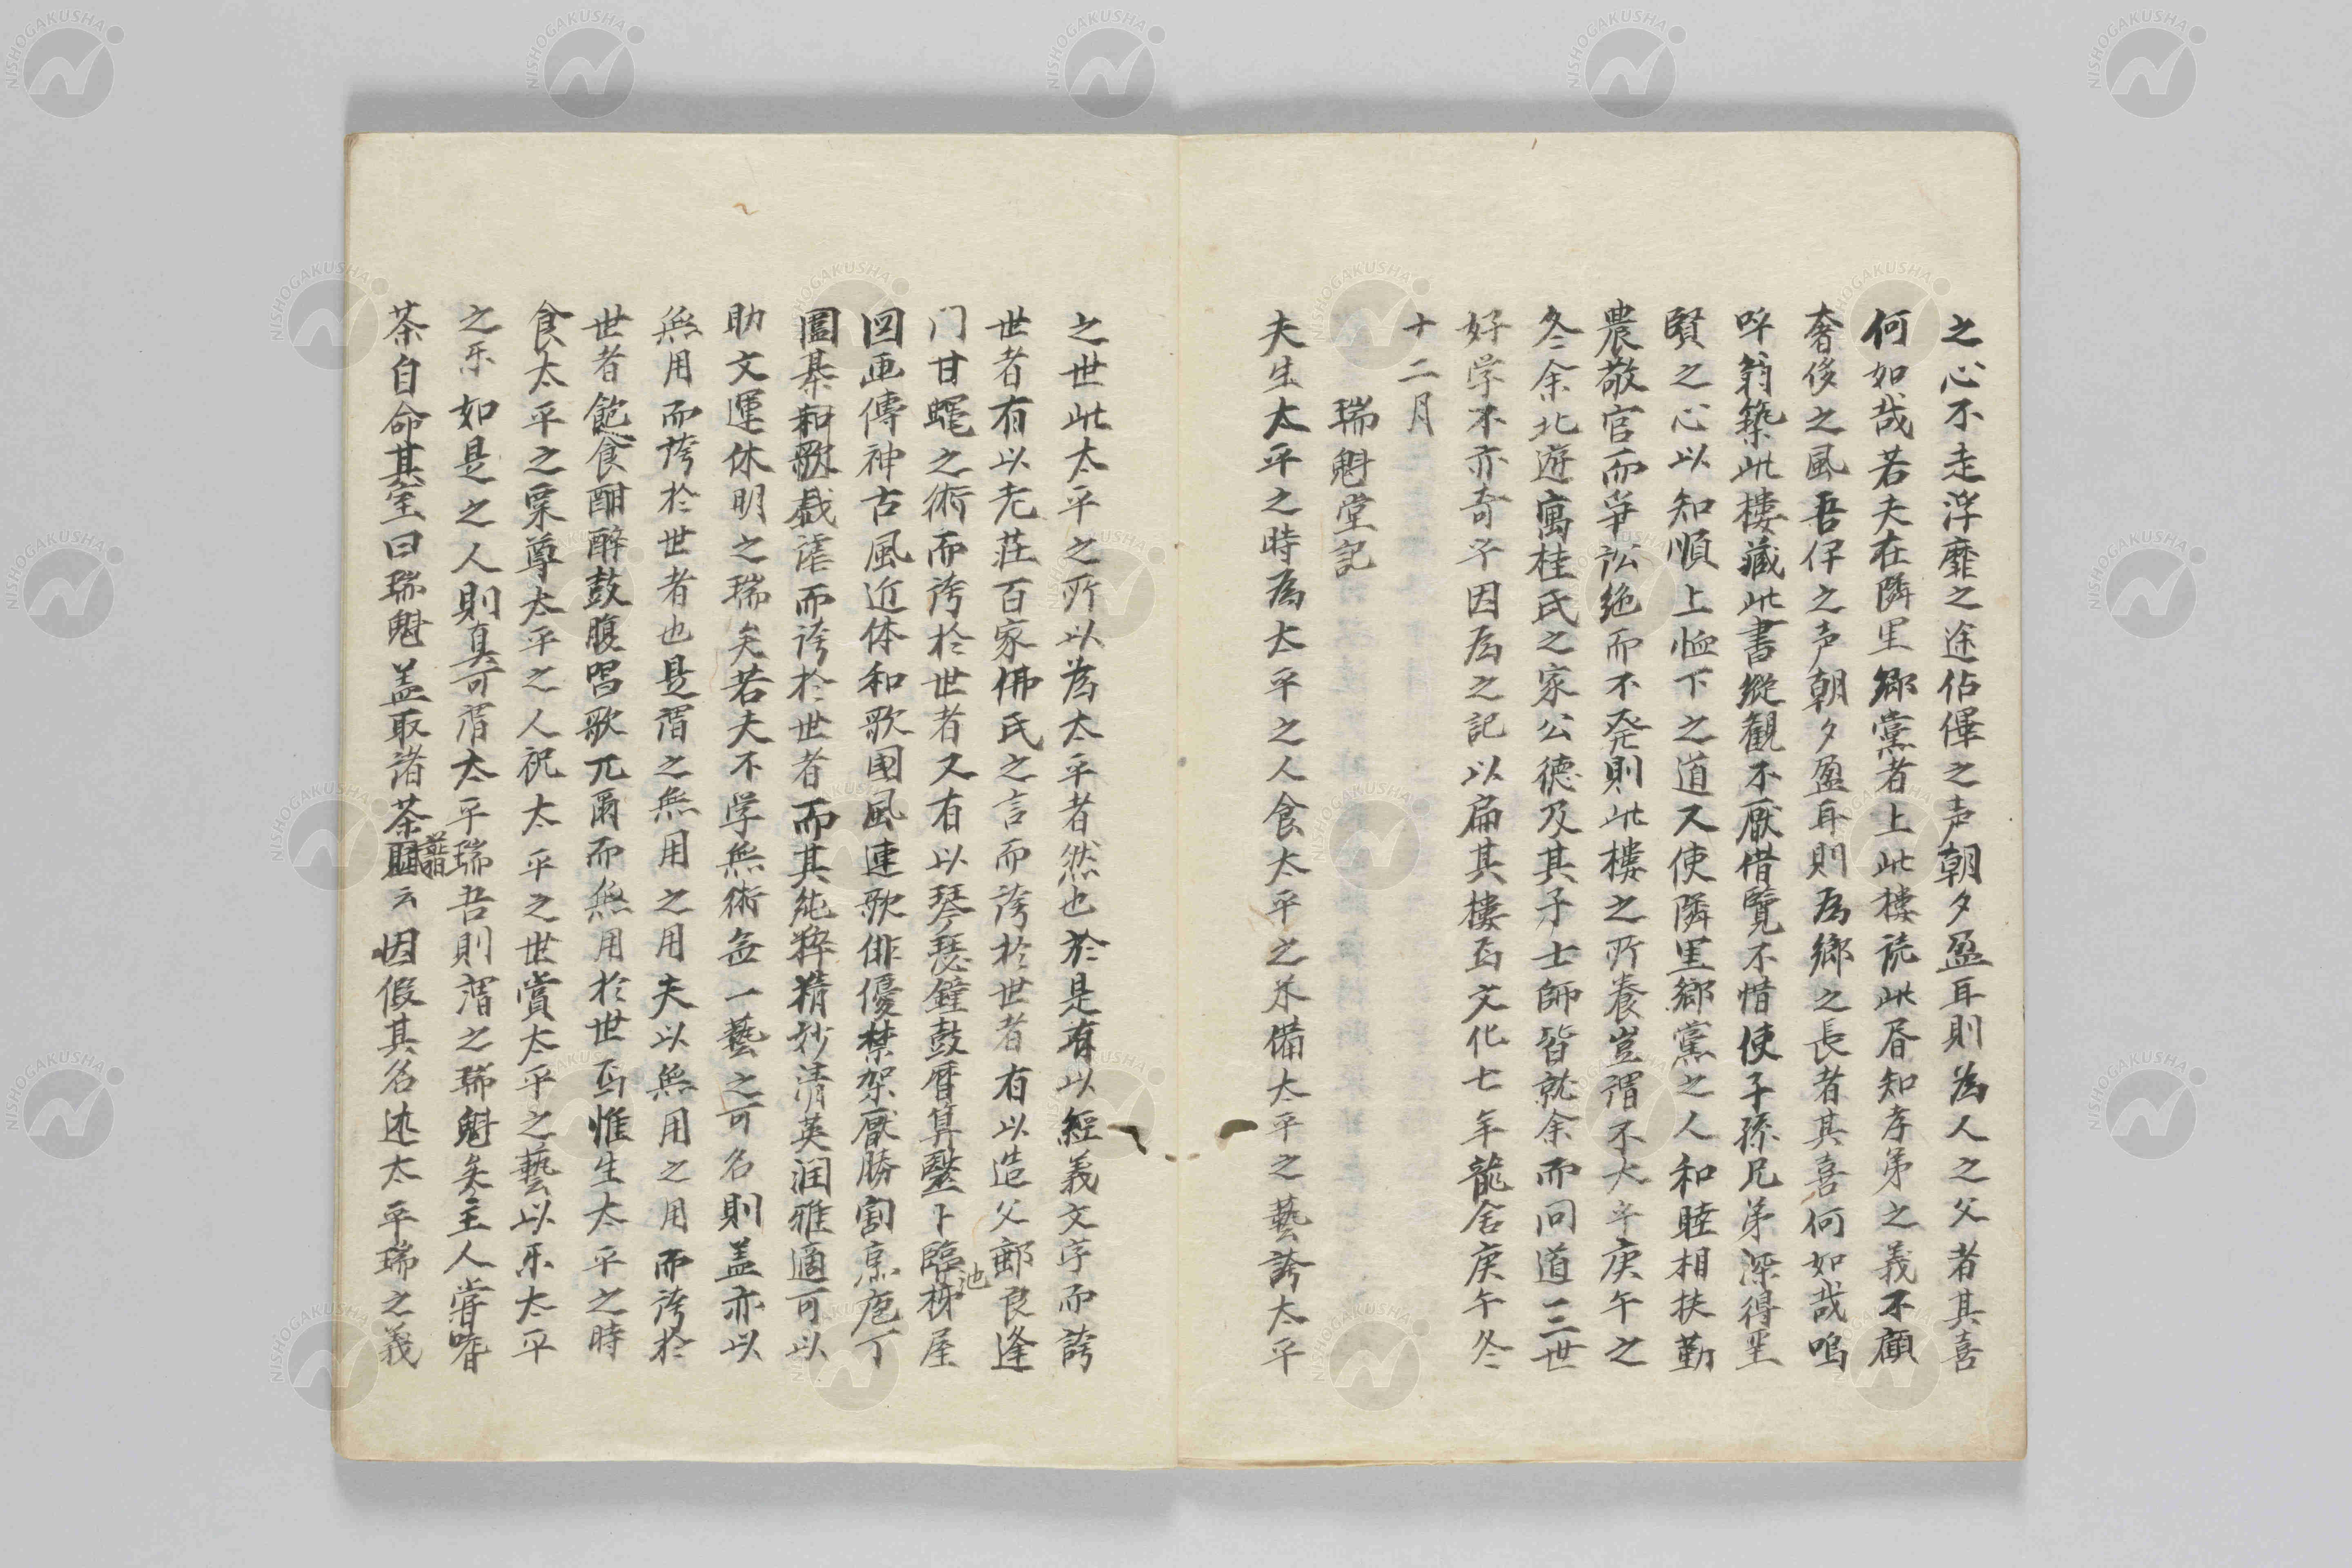 之心不走浮靡之途佔僤之声朝夕盈耳則為人之父者其喜
何如哉若夫在隣里郷黨者上此樓読此書知孝弟之義不顧
奢侈之風吾伊之声朝夕盈耳則為郷之長者其喜何如哉嗚
呼翁築此樓藏此書縱観不厭借覧不惜使子孫兄弟深得聖
賢之心以知順上恤下之道又使隣里郷黨之人和睦相扶勤
農敬官而争訟絶而不発則此樓之所養豈謂不大乎庚午之
冬余北遊寓桂氏之家公德及其子士師皆就余而问道三世
好学不亦奇乎因為之記以扁其樓旹文化七年龍舍庚午冬
十二月
瑞魁堂記
夫生太平之時為太平之人食太平之禾備太平之藝誇太平
之世此太平之所以為太平者然也於是有以經義文字而誇
世者有以老莊百家佛氏之言而誇於世者有以造父郵良逢
门甘蠅之術而誇於世者又有以琴瑟鐘鼓暦算毉卜臨池屋
図画傳神古風近体和歌国風連歌俳優禁架厭勝割烹庖丁
圍棊和歌戯谑而誇於世者而其純粋精妙清英润雅適可以
助文運休明之瑞矣若夫不学無術無一藝之可名則盖亦以
無用而誇於世者也是谓之無用之用夫以無用之用而誇於
世者飽食酣醉鼓腹唱歌兀爾而無用於世焉惟生太平之時
食太平之粟尊太平之人祝太平之世賞太平之藝以乐太平
之乐如是之人則真可谓太平瑞吾則谓之瑞魁矣主人嘗嗜
茶自命其室曰瑞魁盖取诸茶譜云因假其名述太平瑞之義
NISHOGAKUSHA